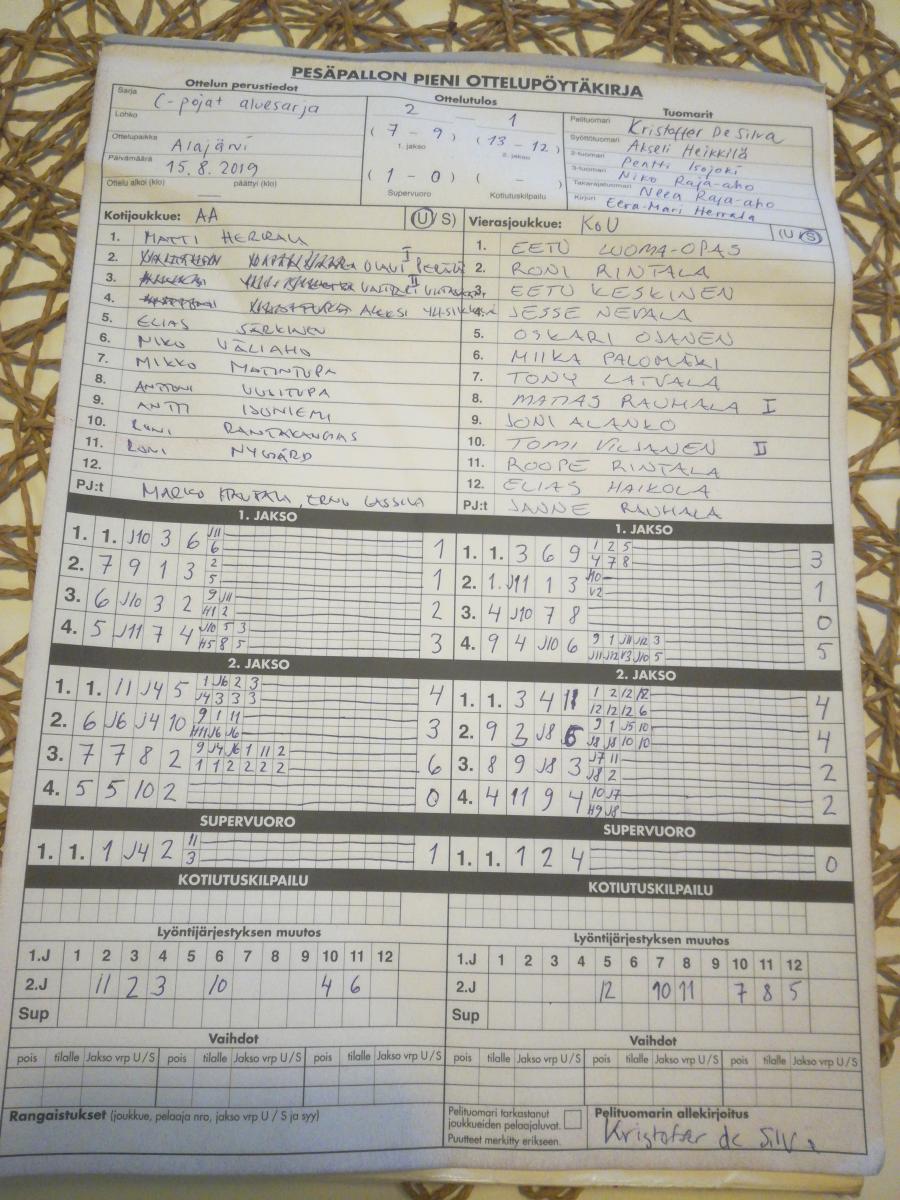 PESÄPALLON PIENI OTTELUPÖYTÄKIRJA
Ottelun perustiedot
Sarja C-pojat aluesarja
Lohko
Ottelupaikka Alajärvi
Päivämäärä 15.8.2019
Ottelu alkoi (klo) päättyi (klo)
Ottelutulos
2 - 1
(7 - 9) (13 - 12)
1. jakso 2. jakso
(1 - 0) ( - )
Supervuoro Kotiutuskilpailu
Tuomarit
Pelituomari Kristoffer De Silva
Syöttötuomari Akseli Heikkilä
2-tuomari Pentti Isojoki
3-tuomari Niko Raja-aho
Takarajatuomari Neea Raja-aho
Kirjuri Eera-Mari Herrala
Kotijoukkue: AA (U/S)
1. MATTI HERRALA
2. OLAVI I
3. II
4. ALEKSI
5. ELIAS SÄRKINEN
6. NIKO VÄLIAHO
7. MIKKO MATINTUPA
8. ANTTONI UUSITUPA
9. ANTTI ISONIEMI
10. RONI RANTAKANGAS
11. RONI NYGÅRD
12.
PJ:t MARKO LASSILA
Vierasjoukkue: KoU (U/S)
1. EETU LUOMA-OPAS
2. RONI RINTALA
3. EETU KESKINEN
4. JESSE NEVALA
5. OSKARI OJANEN
6. MIIKA PALOMÄKI
7. TONY LATVALA
8. MATIAS RAUHALA I
9. JONI ALANKO
10. TOMI VILJANEN II
11. ROOPE RINTALA
12. ELIAS HAIKOLA
PJ:t JANNE RAUHALA
1. JAKSO
1. 1. J10 3 6 J11 1
6
2. 7 9 1 3 2 1
5
3. 6 J10 3 2 9 J11 2
H1 2
4. 5 J11 7 4 J10 5 3 3
H5 8 5
2. JAKSO
1. 1. 11 J4 5 1 J6 2 3 4
J4 3 3 3
2. 6 J6 J4 10 9 1 11 3
H11 J6 J6
3. 7 7 8 2 9 J4 J6 1 11 2 6
1 1 2 2 2 2
4. 5 5 10 2 0
SUPERVUORO
1. 1. 1 J4 2 11 1
3
KOTIUTUSKILPAILU
Lyöntijärjestyksen muutos
1.J 1 2 3 4 5 6 7 8 9 10 11 12
2.J 11 2 3 10 4 6
Sup
Vaihdot
pois tilalle Jakso vrp U/S pois tilalle Jakso vrp U/S pois tilalle Jakso vrp U/S
Rangaistukset (joukkue, pelaaja nro, jakso vrp U / S ja syy)
1. JAKSO
1. 1. 3 6 9 1 2 5 3
4 7 8
2. 1. J11 1 3 H10 1
V2
3. 4 J10 7 8 0
4. 9 4 J10 6 9 1 J11 J12 3 5
J11 J12 V3 J10 5
2. JAKSO
1. 1. 3 4 11 1 2 12 12 4
12 12 12 6
2. 9 3 J8 6 9 1 J5 10 4
J8 J8 10 10
3. 8 9 J8 3 J7 11 2
J8 2
4. 4 11 9 4 10 J7 2
H9 J8
SUPERVUORO
1. 1. 1 2 4 0
KOTIUTUSKILPAILU
Lyöntijärjestyksen muutos
1.J 1 2 3 4 5 6 7 8 9 10 11 12
2.J 12 10 11 7 8 5
Sup
Vaihdot
pois tilalle Jakso vrp U/S pois tilalle Jakso vrp U/S pois tilalle Jakso vrp U/S
Pelituomari tarkastanut
joukkueiden pelaajaluvat.
Puutteet merkitty erikseen.
Pelituomarin allekirjoitus
Kristoffer de Silva